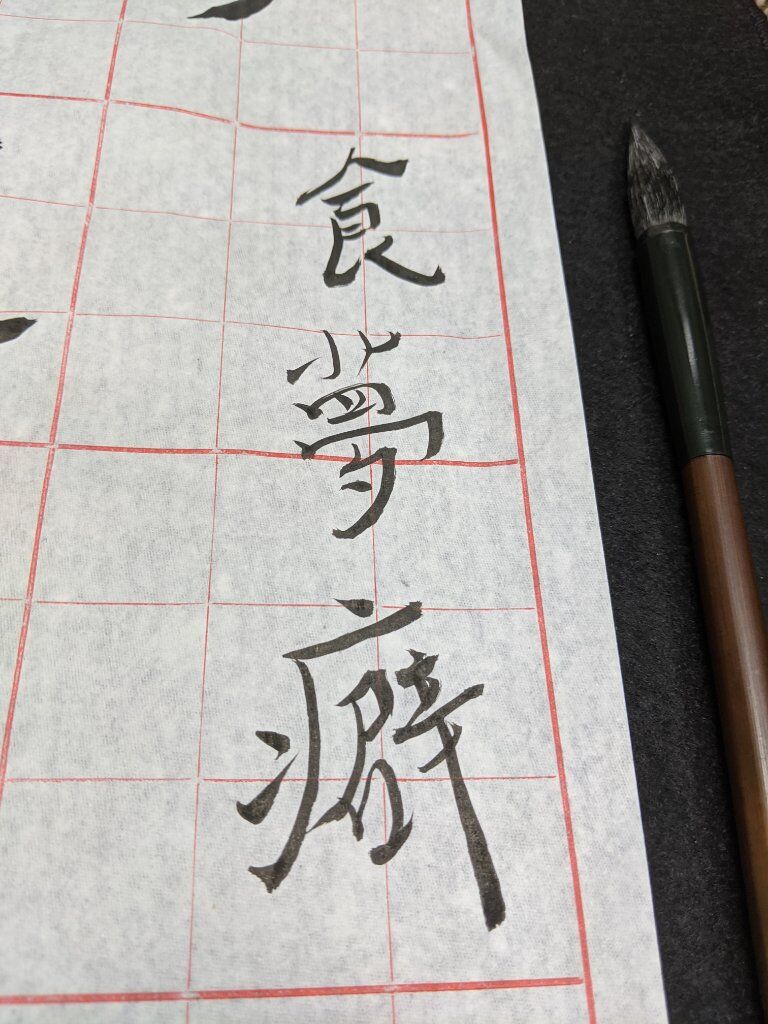 食夢癖